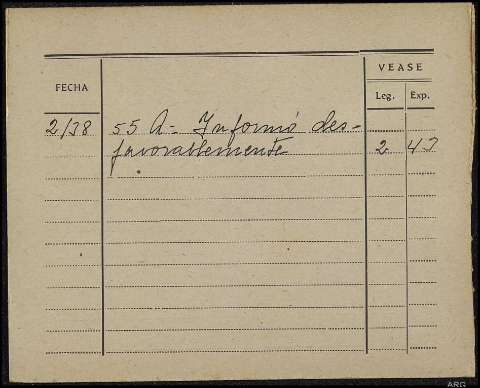 VEASE
FECHA
Leg. Exp.
2/38 55 A - Informó des-
favorablemente 2
ARG